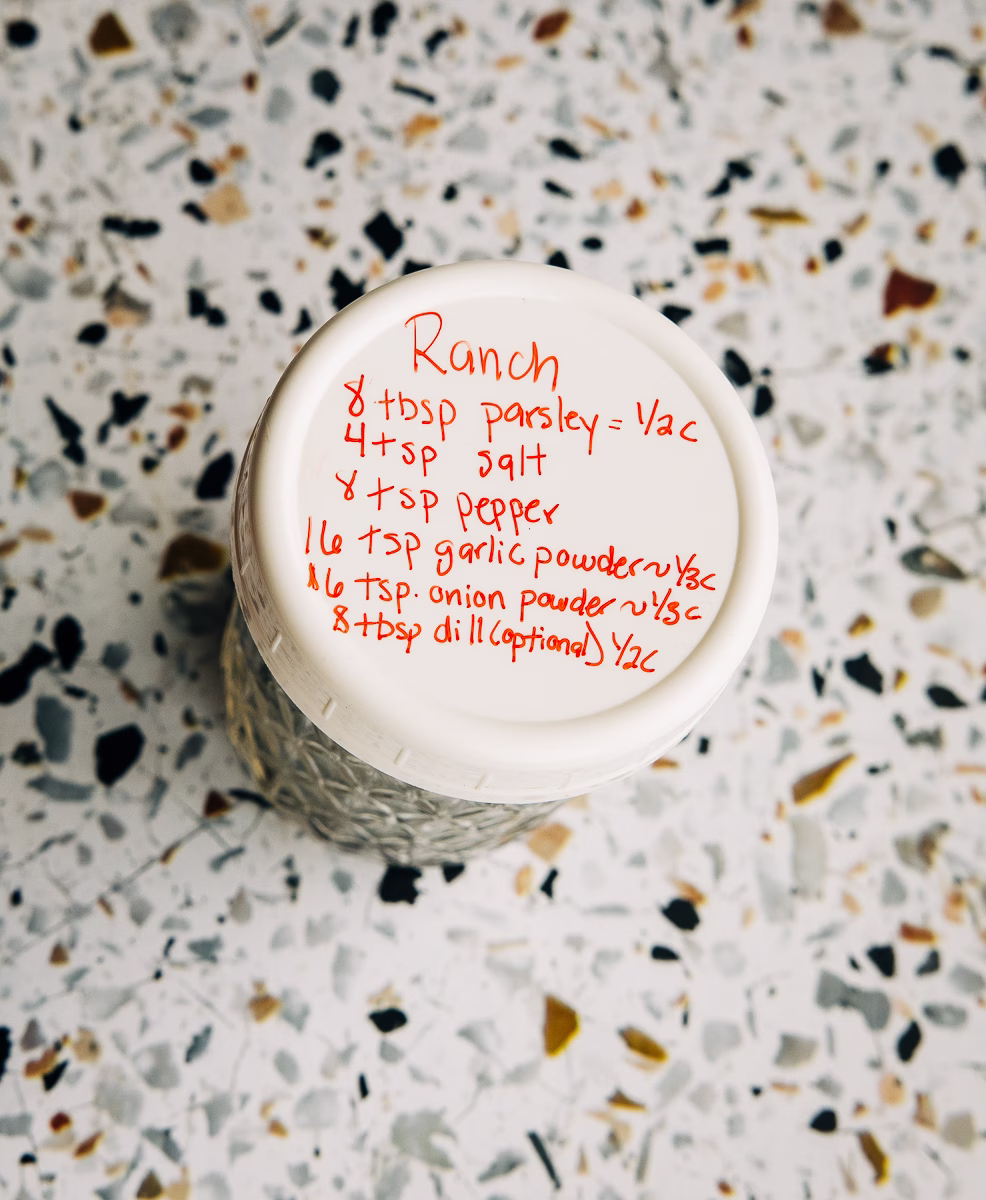 Ranch
8 tbsp parsley = 1/2 c
4 tsp salt
8 tsp pepper
16 tsp garlic powder ~ 1/3 c
16 tsp. onion powder ~ 1/3 c
8 tbsp dill (optional) 1/2 c